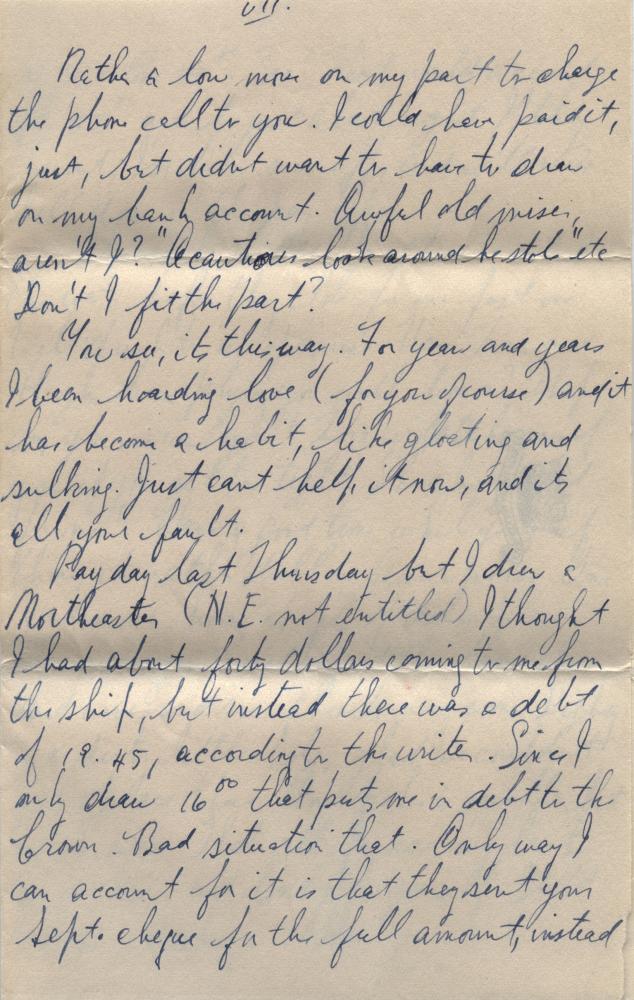 VII.
Rather a low move on my part to charge
the phone call to you. I could have paid it,
just, but didnt want to have to draw
on my bank account. Awful old miser,
aren't I? "A cautious look around he stole" etc
Don't I fit the part?
You see, its this way. For years and years
I been hoarding love (for you of course) and it
has become a habit, like gloating and
sulking. Just cant help it now, and its
all your fault.
Payday last Thursday but I drew a
Northeaster (N.E. not entitled) I thought
I had about forty dollars coming to me from
the ship, but instead there was a debt
of 19.45, according to the writer. Since I
only draw 16 00 that puts me in debt to the
Crown. Bad situation that. Only way I
can account for it is that they sent your
Sept. cheque for the full amount, instead